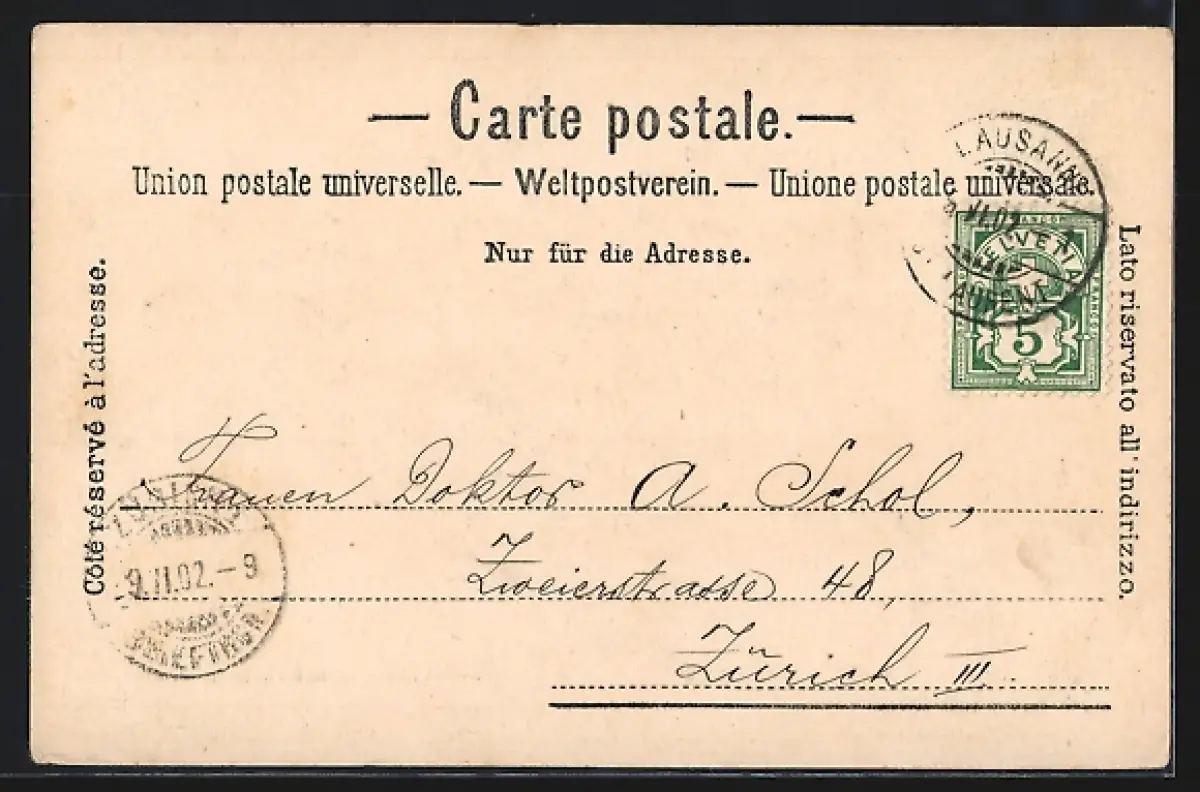 — Carte postale. —
Union postale universelle. — Weltpostverein. — Unione postale universale.
Nur für die Adresse.
Côté réservé à l'adresse.
Lato riservato all'indirizzo.
LAUSANNE
VI.02
LAURENT
HELVETIA
5
Frauen Doktor A. Schol,
Zweierstrasse 48,
Zürich III.
9.VI.02.-9
BRIEFTRGR.